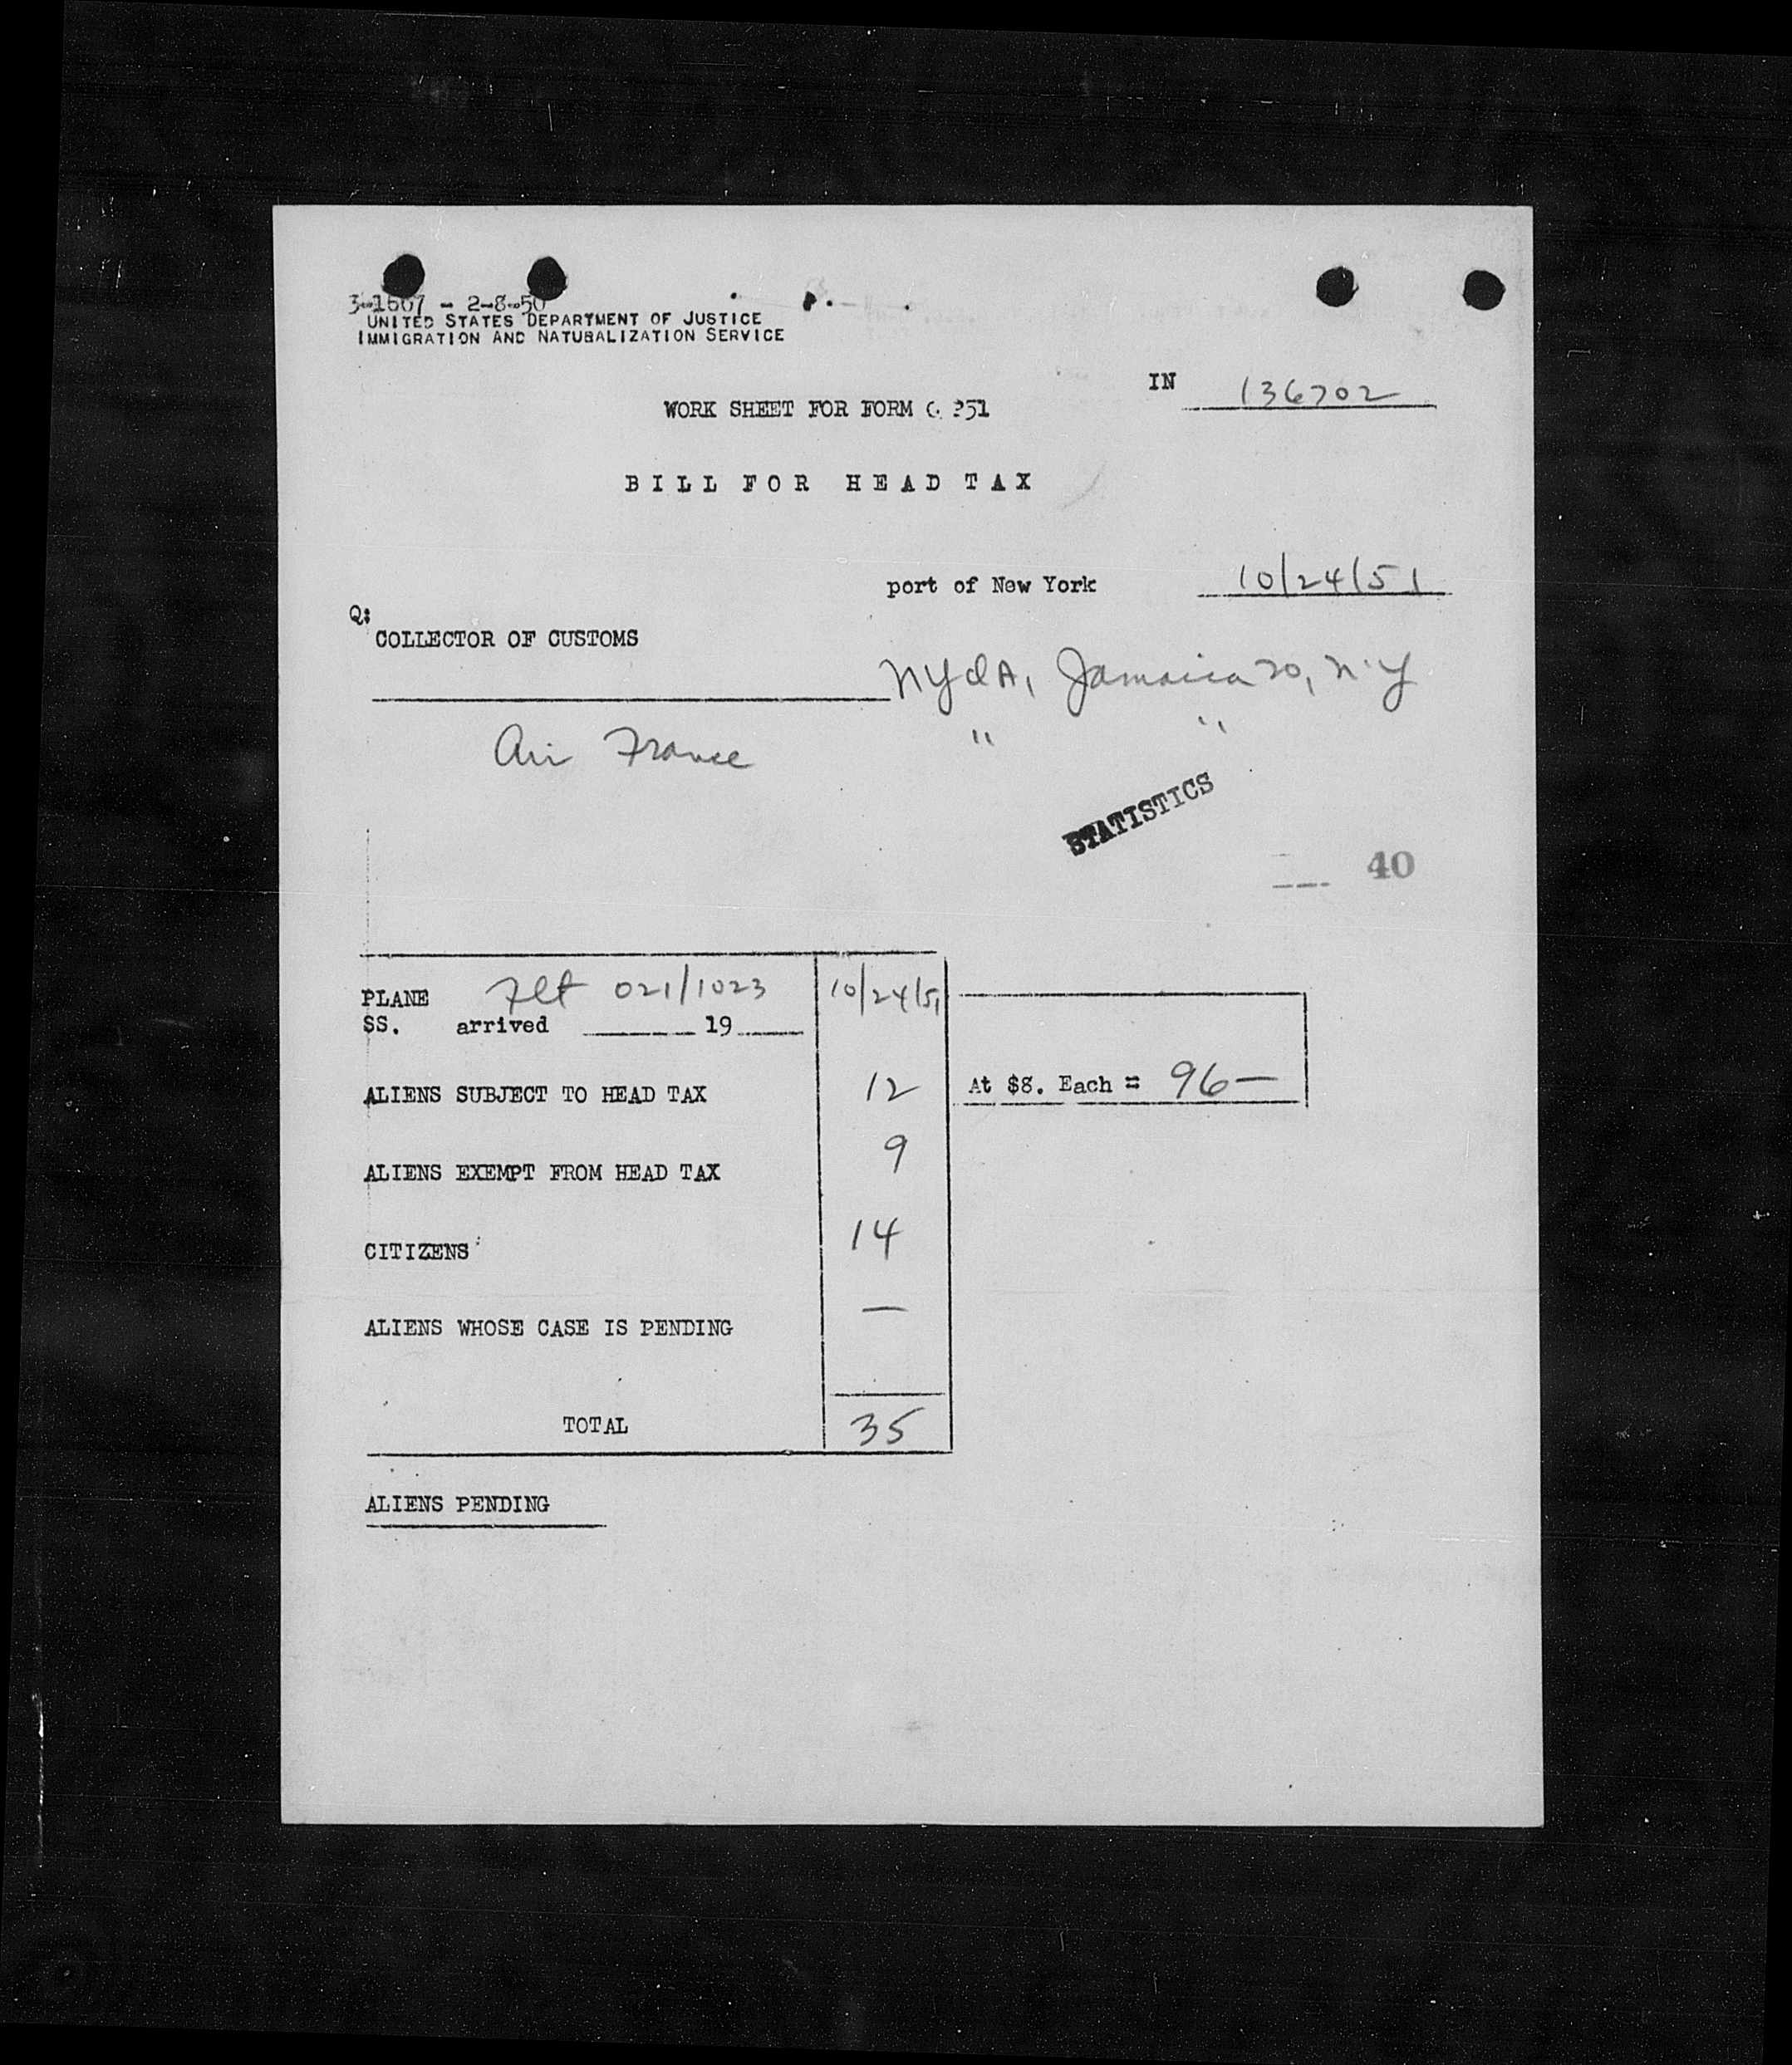 3-1567 - 2-8-50
UNITED STATES DEPARTMENT OF JUSTICE
IMMIGRATION AND NATURALIZATION SERVICE
IN 136702
WORK SHEET FOR FORM 251
BILL FOR HEAD TAX
port of New York 10/24/51
Q:
COLLECTOR OF CUSTOMS
NYIA, Jamaica 20, N.Y
Air France " "
STATISTICS
40
PLANE Flt 021/1023 10/24/51
SS. arrived 19
ALIENS SUBJECT TO HEAD TAX 12 At $8. Each = 96—
ALIENS EXEMPT FROM HEAD TAX 9
CITIZENS 14
ALIENS WHOSE CASE IS PENDING —
TOTAL 35
ALIENS PENDING